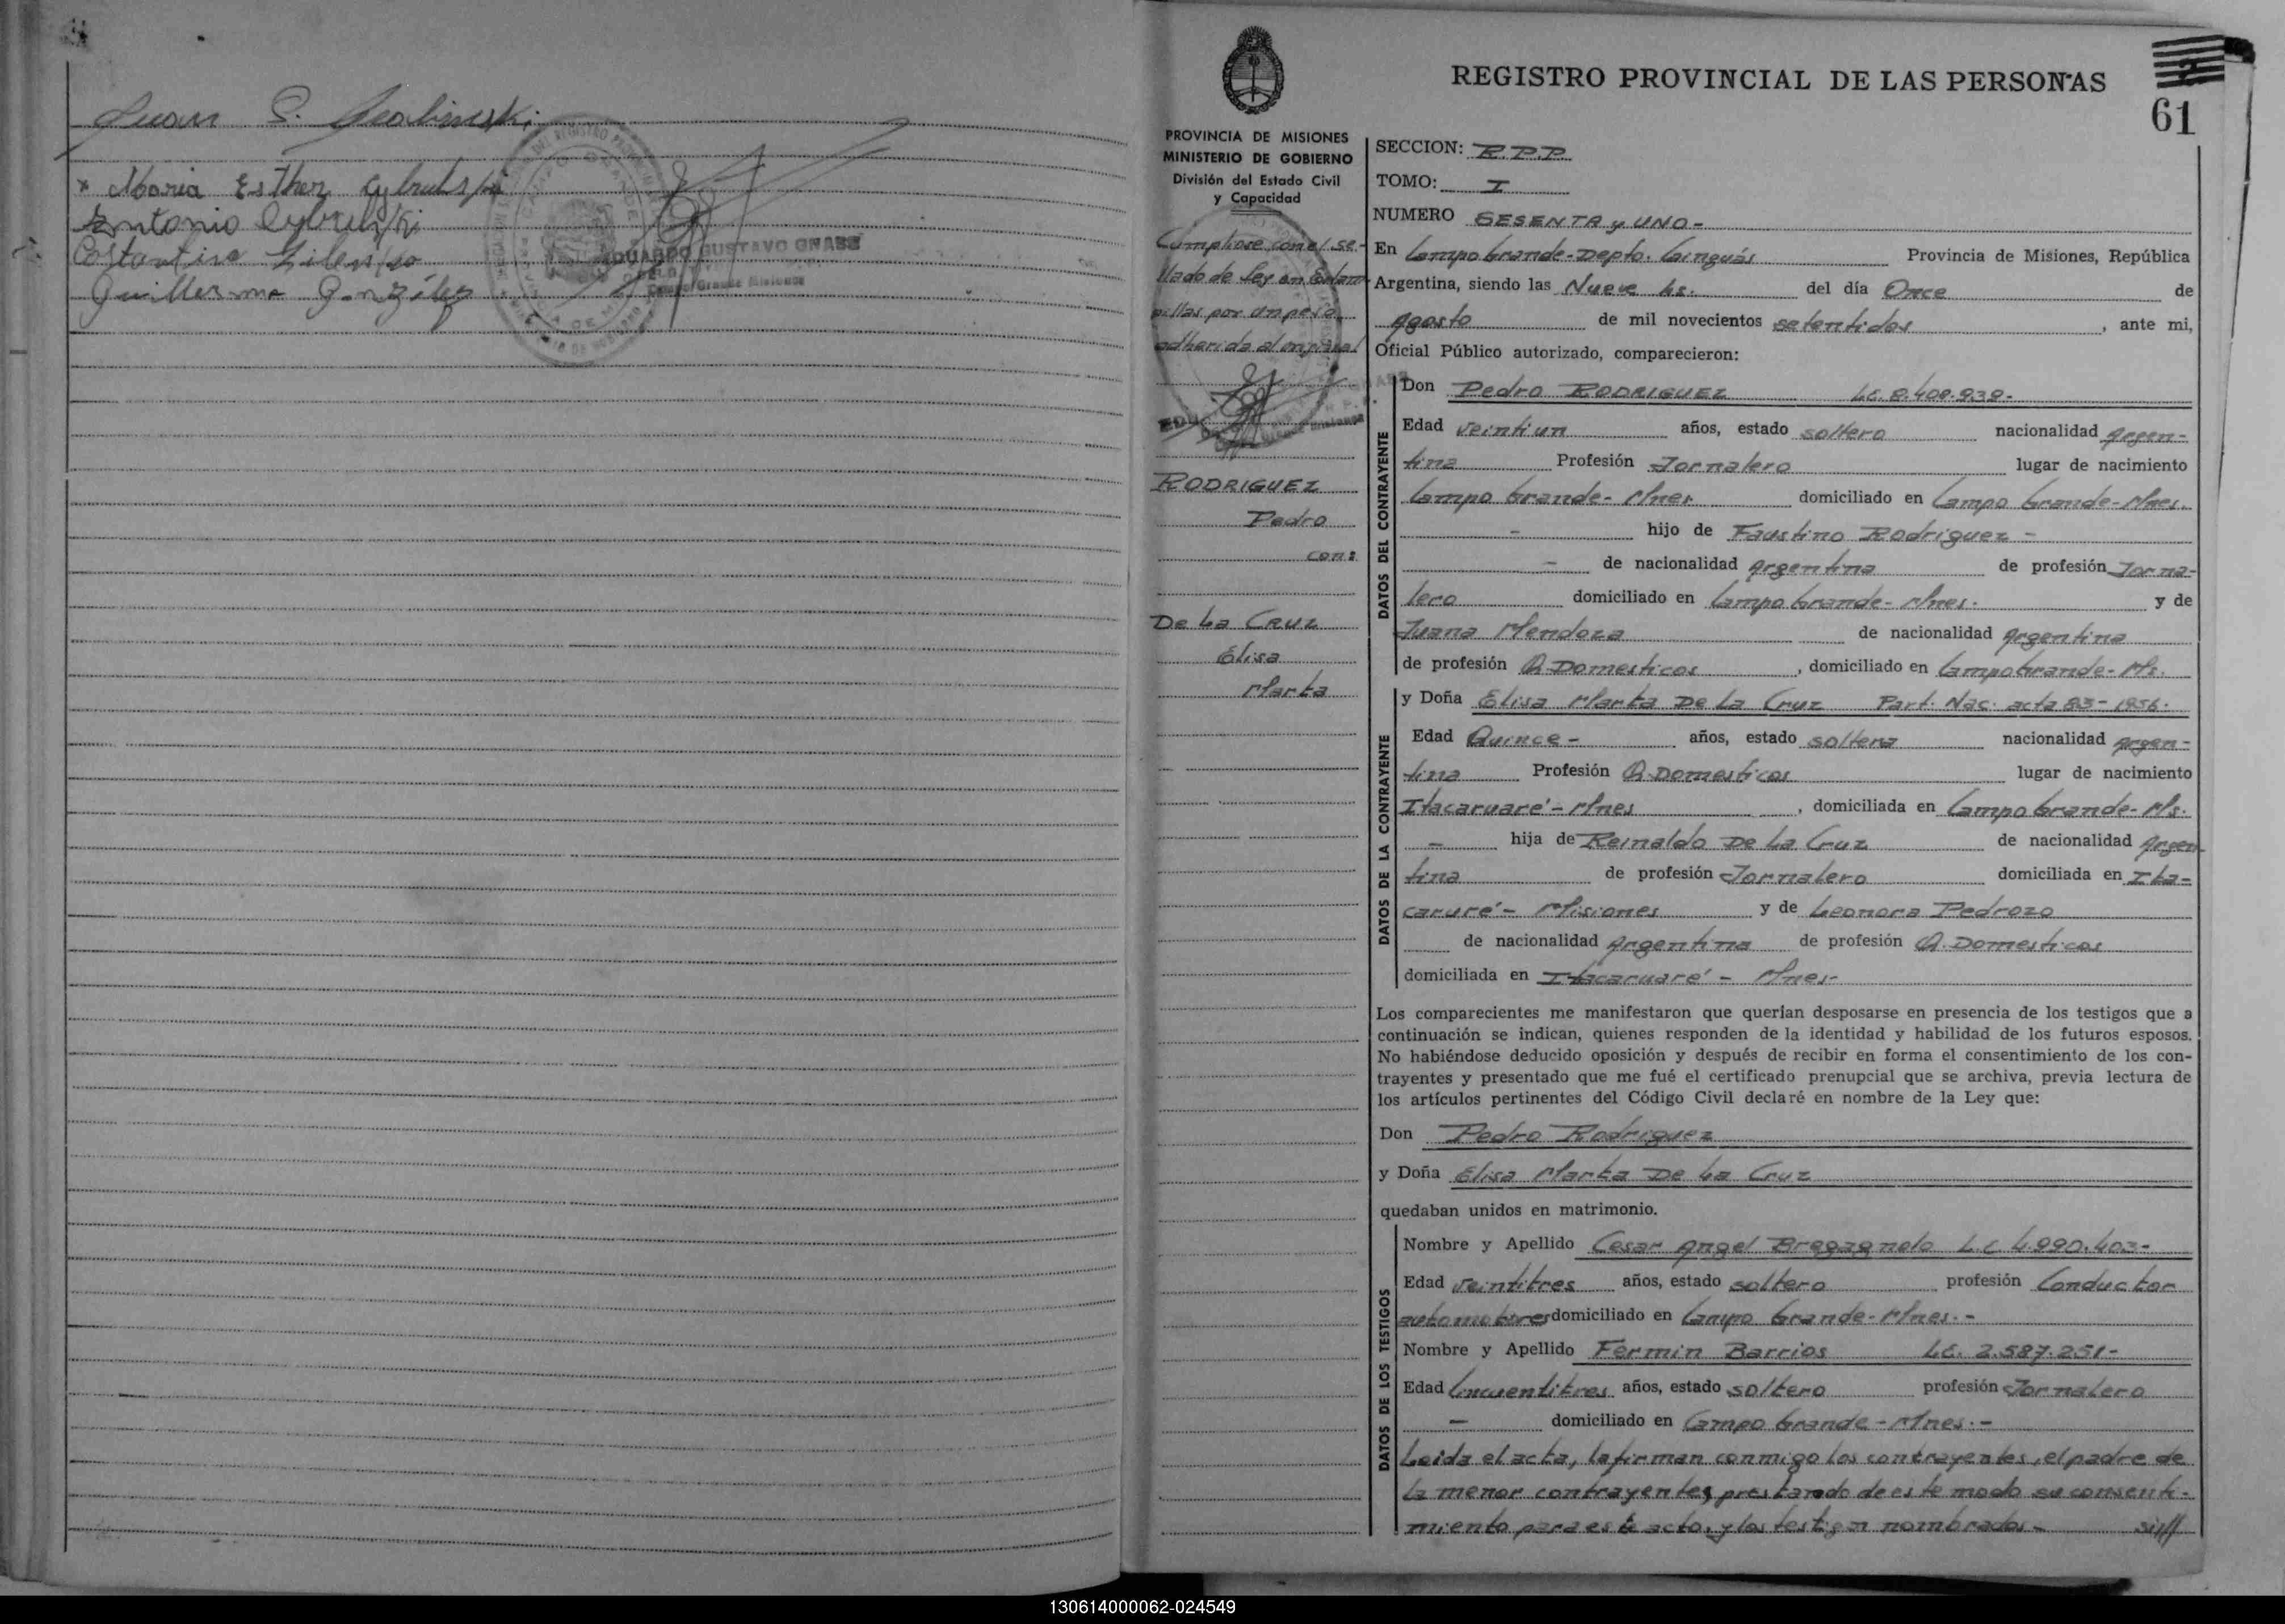 Juan S.
* Maria Esther Cybulski
Antonio Cybulski
Guillermo González
EDUARDO GUSTAVO GRABE
Campo Grande Misiones
REGISTRO PROVINCIAL DE LAS PERSONAS
61
PROVINCIA DE MISIONES
MINISTERIO DE GOBIERNO
División del Estado Civil
y Capacidad
Cumplióse con el se-
llado de ley en Estam-
pillas por un peso
adherida al original
RODRIGUEZ
Pedro
con:
De La CRUZ
Elisa
Marta
SECCION: R.P.P.
TOMO: I
NUMERO SESENTA y UNO-
En Campo Grande-Depto. Cainguás Provincia de Misiones, República
Argentina, siendo las Nueve hs. del día Once de
Agosto de mil novecientos setentidos, ante mi,
Oficial Público autorizado, comparecieron:
DATOS DEL CONTRAYENTE
Don Pedro RODRIGUEZ L.E. 8.409.939.
Edad veintiun años, estado soltero nacionalidad Argen-
tina Profesión Jornalero lugar de nacimiento
Campo Grande- Mnes domiciliado en Campo Grande-Mnes.
- hijo de Faustino Rodriguez -
- de nacionalidad Argentina de profesión Jorna-
lero domiciliado en Campo Grande- Mnes. y de
Juana Mendoza de nacionalidad Argentina
de profesión Q. Domesticos, domiciliado en Campo Grande- Ms.
DATOS DE LA CONTRAYENTE
y Doña Elisa Marta De La Cruz Part. Nac. acta 83- 1956.
Edad Quince - años, estado soltera nacionalidad Argen-
tina Profesión Q. Domesticos lugar de nacimiento
Itacaruaré - Mnes, domiciliada en Campo Grande- Ms.
- hija de Reinaldo De La Cruz de nacionalidad Argen-
tina de profesión Jornalero domiciliada en Ita-
caruré - Misiones y de Leonora Pedrozo
de nacionalidad Argentina de profesión Q. Domesticos
domiciliada en Itacaruaré - Mnes-
Los comparecientes me manifestaron que querían desposarse en presencia de los testigos que a
continuación se indican, quienes responden de la identidad y habilidad de los futuros esposos.
No habiéndose deducido oposición y después de recibir en forma el consentimiento de los con-
trayentes y presentado que me fué el certificado prenupcial que se archiva, previa lectura de
los artículos pertinentes del Código Civil declaré en nombre de la Ley que:
Don Pedro Rodriguez
y Doña Elisa Marta De La Cruz
quedaban unidos en matrimonio.
DATOS DE LOS TESTIGOS
Nombre y Apellido Cesar Angel Bregagnolo L.E 4.990.403-
Edad veintitres años, estado soltero profesión Conductor
automotores domiciliado en Campo Grande- Mnes.-
Nombre y Apellido Fermin Barrios L.E. 2.587.251-
Edad Cincuentitres años, estado soltero profesión Jornalero
- domiciliado en Campo Grande - Mnes.-
Leida el acta, la firman conmigo los contrayentes, el padre de
la menor contrayentes, prestando de este modo su consenti-
miento para este acto, y los testigos nombrados-
130614000062-024549